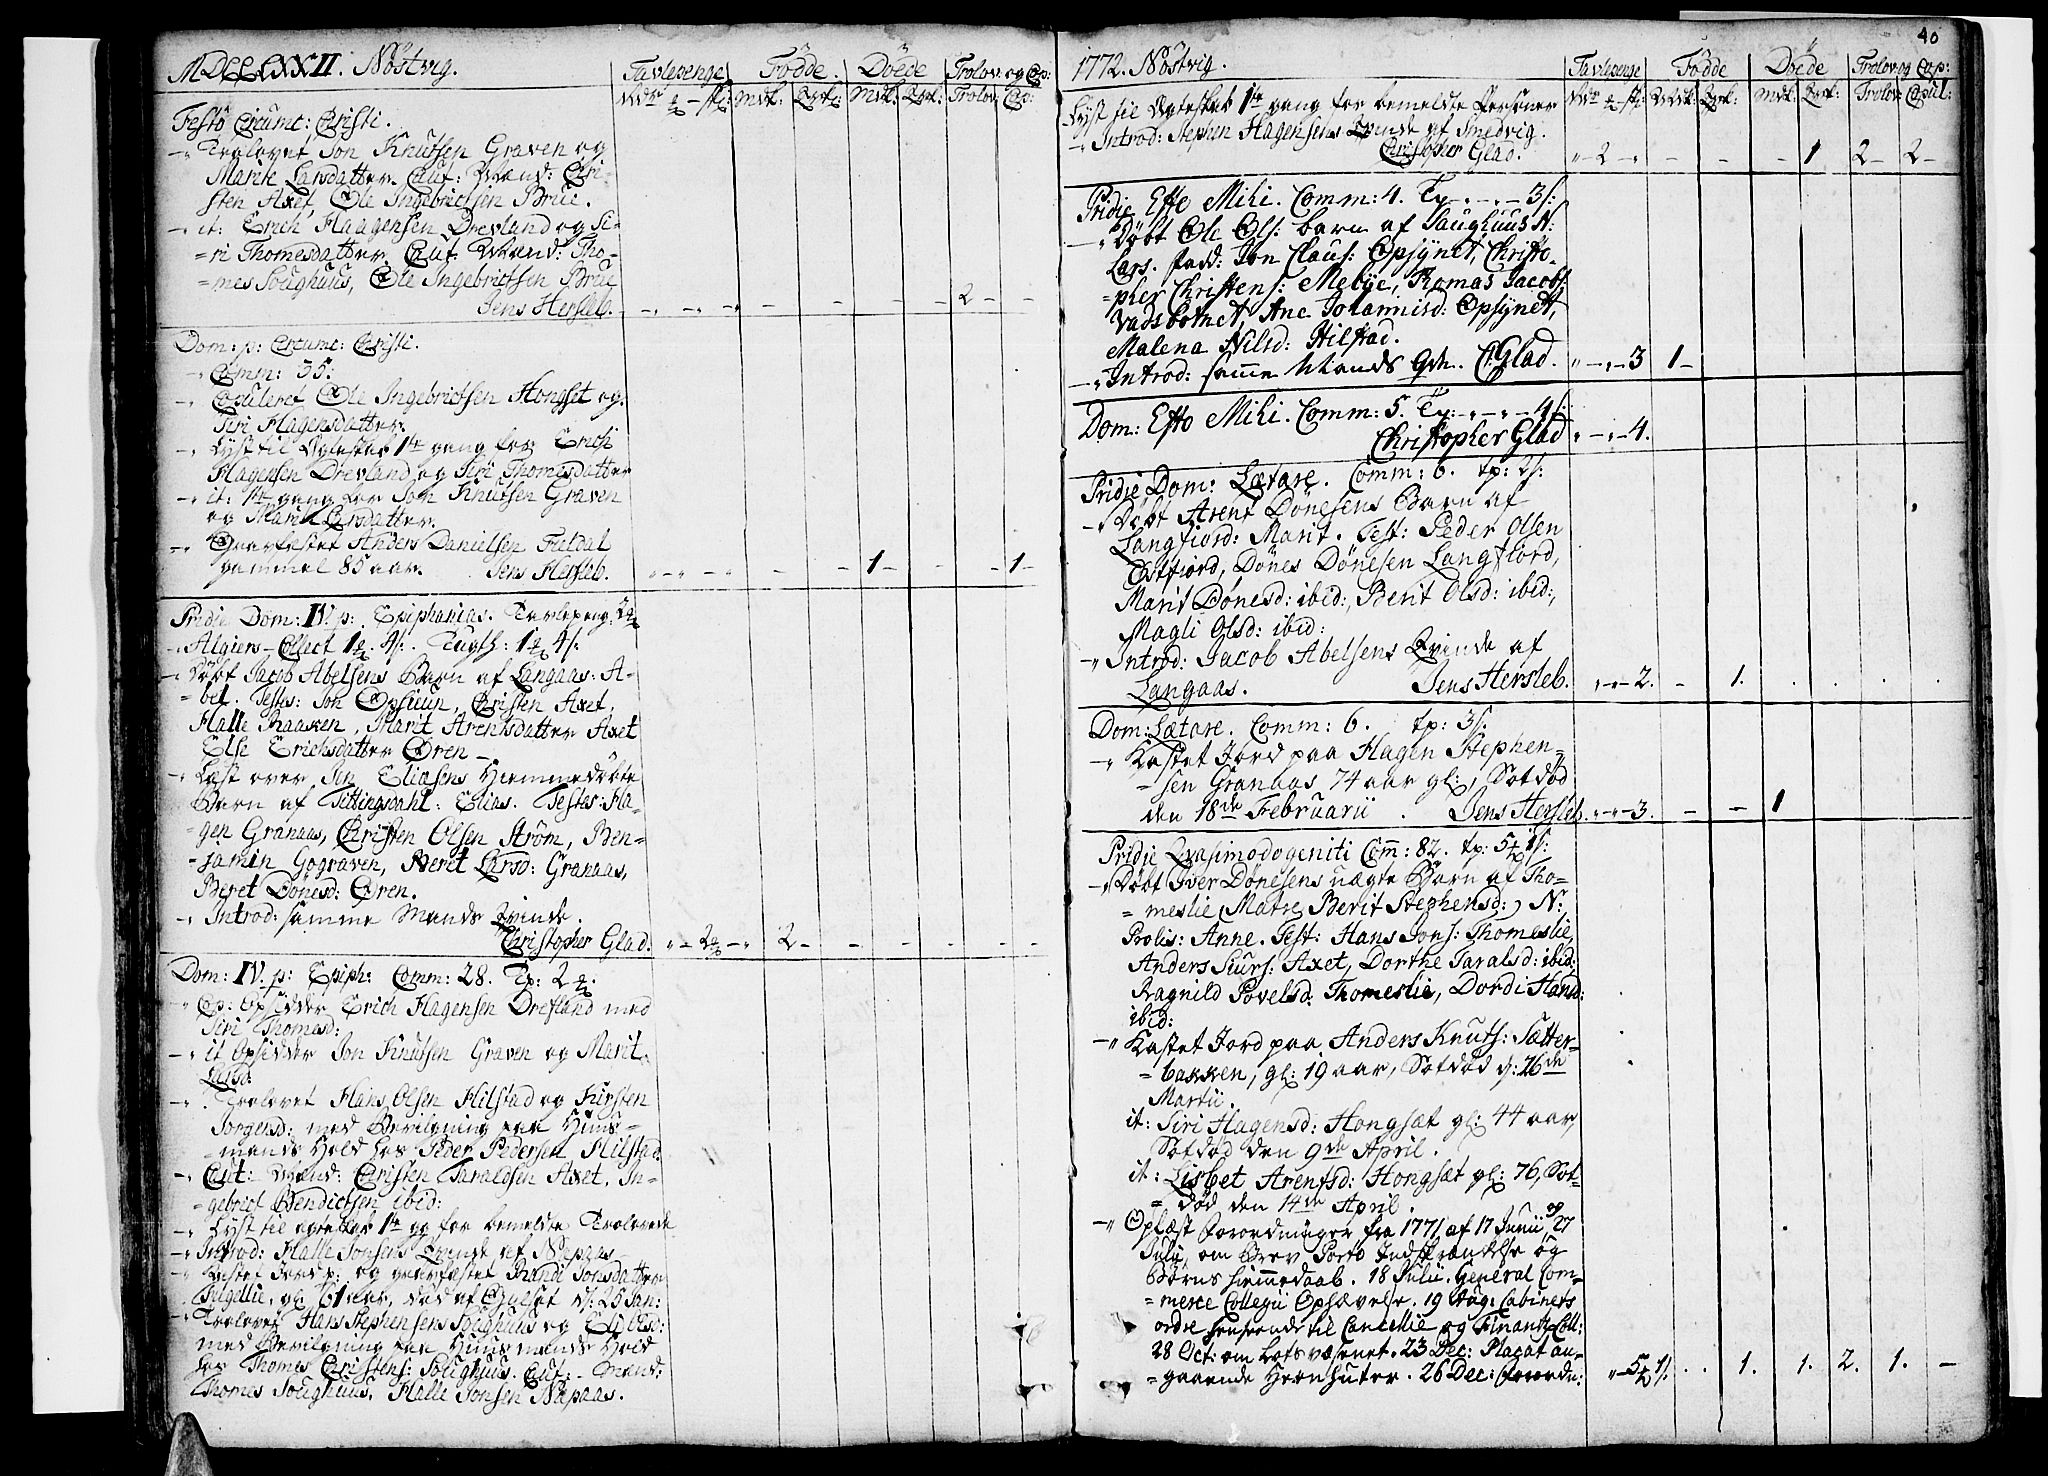 MDCCLXXII. Nöstvig.
Tavlepenge Födde. Döede Trolov: og Cop:
Mdk: Qvk: Mdk: Qvk: Trolov: Co:
Festo Circumc: Christi.
Trolovet Jon Knutsen Graven og
Marite Larsdatter. Caut: Mænd: Chri-
sten Axet, Ole Ingebrictsen Brue.
it: Erich Haagensen Drevland og Si-
ri Thomesdatter. Caut. Mænd: Tho-
mes Soughuus, Ole Ingebrictsen Brue
Jens Hersleb. 2
Dom: p: Circumc: Christi.
Comm: 35:
Copuleret Ole Ingebrictsen Hongset og
Siri Hagensdatter.
Lyst til Ægteskab 1te gang for Erich
Hagensen Drevland og Siri Thomesdatter
it: 1te gang for Jon Knutsen Graven
og Marit Larsdatter.
Gravfæstet Anders Danielsen Fieldal
gammel 85 aar. Jens Hersleb. 1 1
Pridie Dom: IV p: Epiphanias. Tavlepeng:
Algiers-Collect
Döbt Jacob Abelsens Barn af Langaas: A-
bel. Testes: Jon Opsiuun, Christen Axet,
Halle Raaken, Marit Arentsdatter Axet
Else Erichsdatter Ören
Læst over Jon Eliasens Hiemmedöbte
Barn af Sittingsdahl: Elias. Testes: Ha-
gen Granaas, Christen Olsen Ström, Ben-
jamin Gograven, Beret Larsd: Granaas,
Beret Dönesd: Ören.
Introd: samme Mands Qvinde.
Christopher Glad. 2
Dom: IV. p: Epiph: Comm: 28. Tp: 2
Cop: Opsidder Erich Hagensen Drefland med
Siri Thomesd:
it Opsidder Jon Knutsen Graven og Marit
Larsd:
Trolovet Hans Olsen Hilstad og Kirsten
Jorgensd: med Bevilgning paa Huus-
mands Hold hos Peder Pedersen Hilstad.
Caut: Mænd: Christen Taraldsen Axet, In-
gebrict Bendictsen ibid:
Lyst til ægteskab 1te gg for bemeldte Trolovede
Introd: Halle Jonsens Qvinde af Næpaas
Kastet Jord p: og gravfæstet Randi Jonsdatter
gl: 61 aar, död af den 25 Jan:
Trolovet Hans Stephensens Soughuus og
med Bevilgning paa Huusmands Hold
hos Thomes Christens: Soughuus. Caut: Mænd:
Thomes Soughuus, Halle Jonsen Næpaas.
40
1772. Nöstvig.
Tavlepenge Födde Döede Trolov: og Cop:
Mdk: Qvk: Mdk: Qvk: Trolov: Copul:
Lyst til Ægteskab 1te gang for bemeldte Personer
Introd: Stephen Hagensens Qvinde af Smedvig.
Christopher Glad. 2 1 2 2
Pridie Esto Mihi. Comm: 4. Tp 3/:
Döbt Ole Ols: barn af Saughuus N:
Lars. fadd: Jon Claus: Opsynet, Christo-
pher Christens: Mebye, Thomas Jacobs:
Vadsbotnet, Ane Johannisd: Opsynet,
Malena Nilsd: Hilstad.
Introd: samme Mands Qvde. C. Glad. 3 1
Dom: Esto Mihi. Comm: 5. Tp: 4/:
Christopher Glad 4.
Pridie Dom: Lætare. Comm: 6. tp: 2/:
Döbt Arent Dönesens Barn af
Langfiord: Marit. Test: Peder Olsen
Ostfiord, Dönes Dönesen Langfiord,
Marit Dönesd: ibid:, Berit Olsd: ibid:,
Magli Olsd: ibid:
Introd: Jacob Abelsens Qvinde af
Langaas. Jens Hersleb. 2. 1.
Dom: Lætare. Comm: 6. tp: 3/:
Kastet Jord paa Hagen Stephen-
sen Granaas 74 aar gl:, Sotdöd
den 18de Februarii. Jens Hersleb. 3. 1
Pridie Qvasimodogeniti Com: 82. tp:
Döbt Iver Dönesens uægte Barn af Tho-
meslie (Matre Berit Stephensd:) N:
Prolis: Anne. Test: Hans Jons: Thomeslie,
Anders Siurs: Axet, Dorthe Taralsd: ibid:
Ragnild Povelsd: Thomeslie, Dordi Hansd:
ibid:
Kastet Jord paa Anders Knuts: Sætter-
bakken, gl: 19 aar, Sotdöd d: 26de
Martii.
it: Siri Hagensd: Hongsæt gl: 44 aar,
Sotdöd den 9de April.
it: Lisbet Arentsd: Hongsæt gl: 76, Sot-
död den 14de April.
Oplæst Forordninger fra 1771 af 17 Junii og 27
Julii, om Brev Porto Indskrændelse og
Börns hiemmedaab. 18 Julii. General Com-
merce Collegii Ophævelse. 19 Aug: Cabinets
ordre henseende til Cancellie og Finantz Coll:
28 Oct: om Lotsvæsenet. 23 Dec: Placat an-
gaaende Hernhuter. 26 Dec: Forordn: 1. 1. 2. 1.